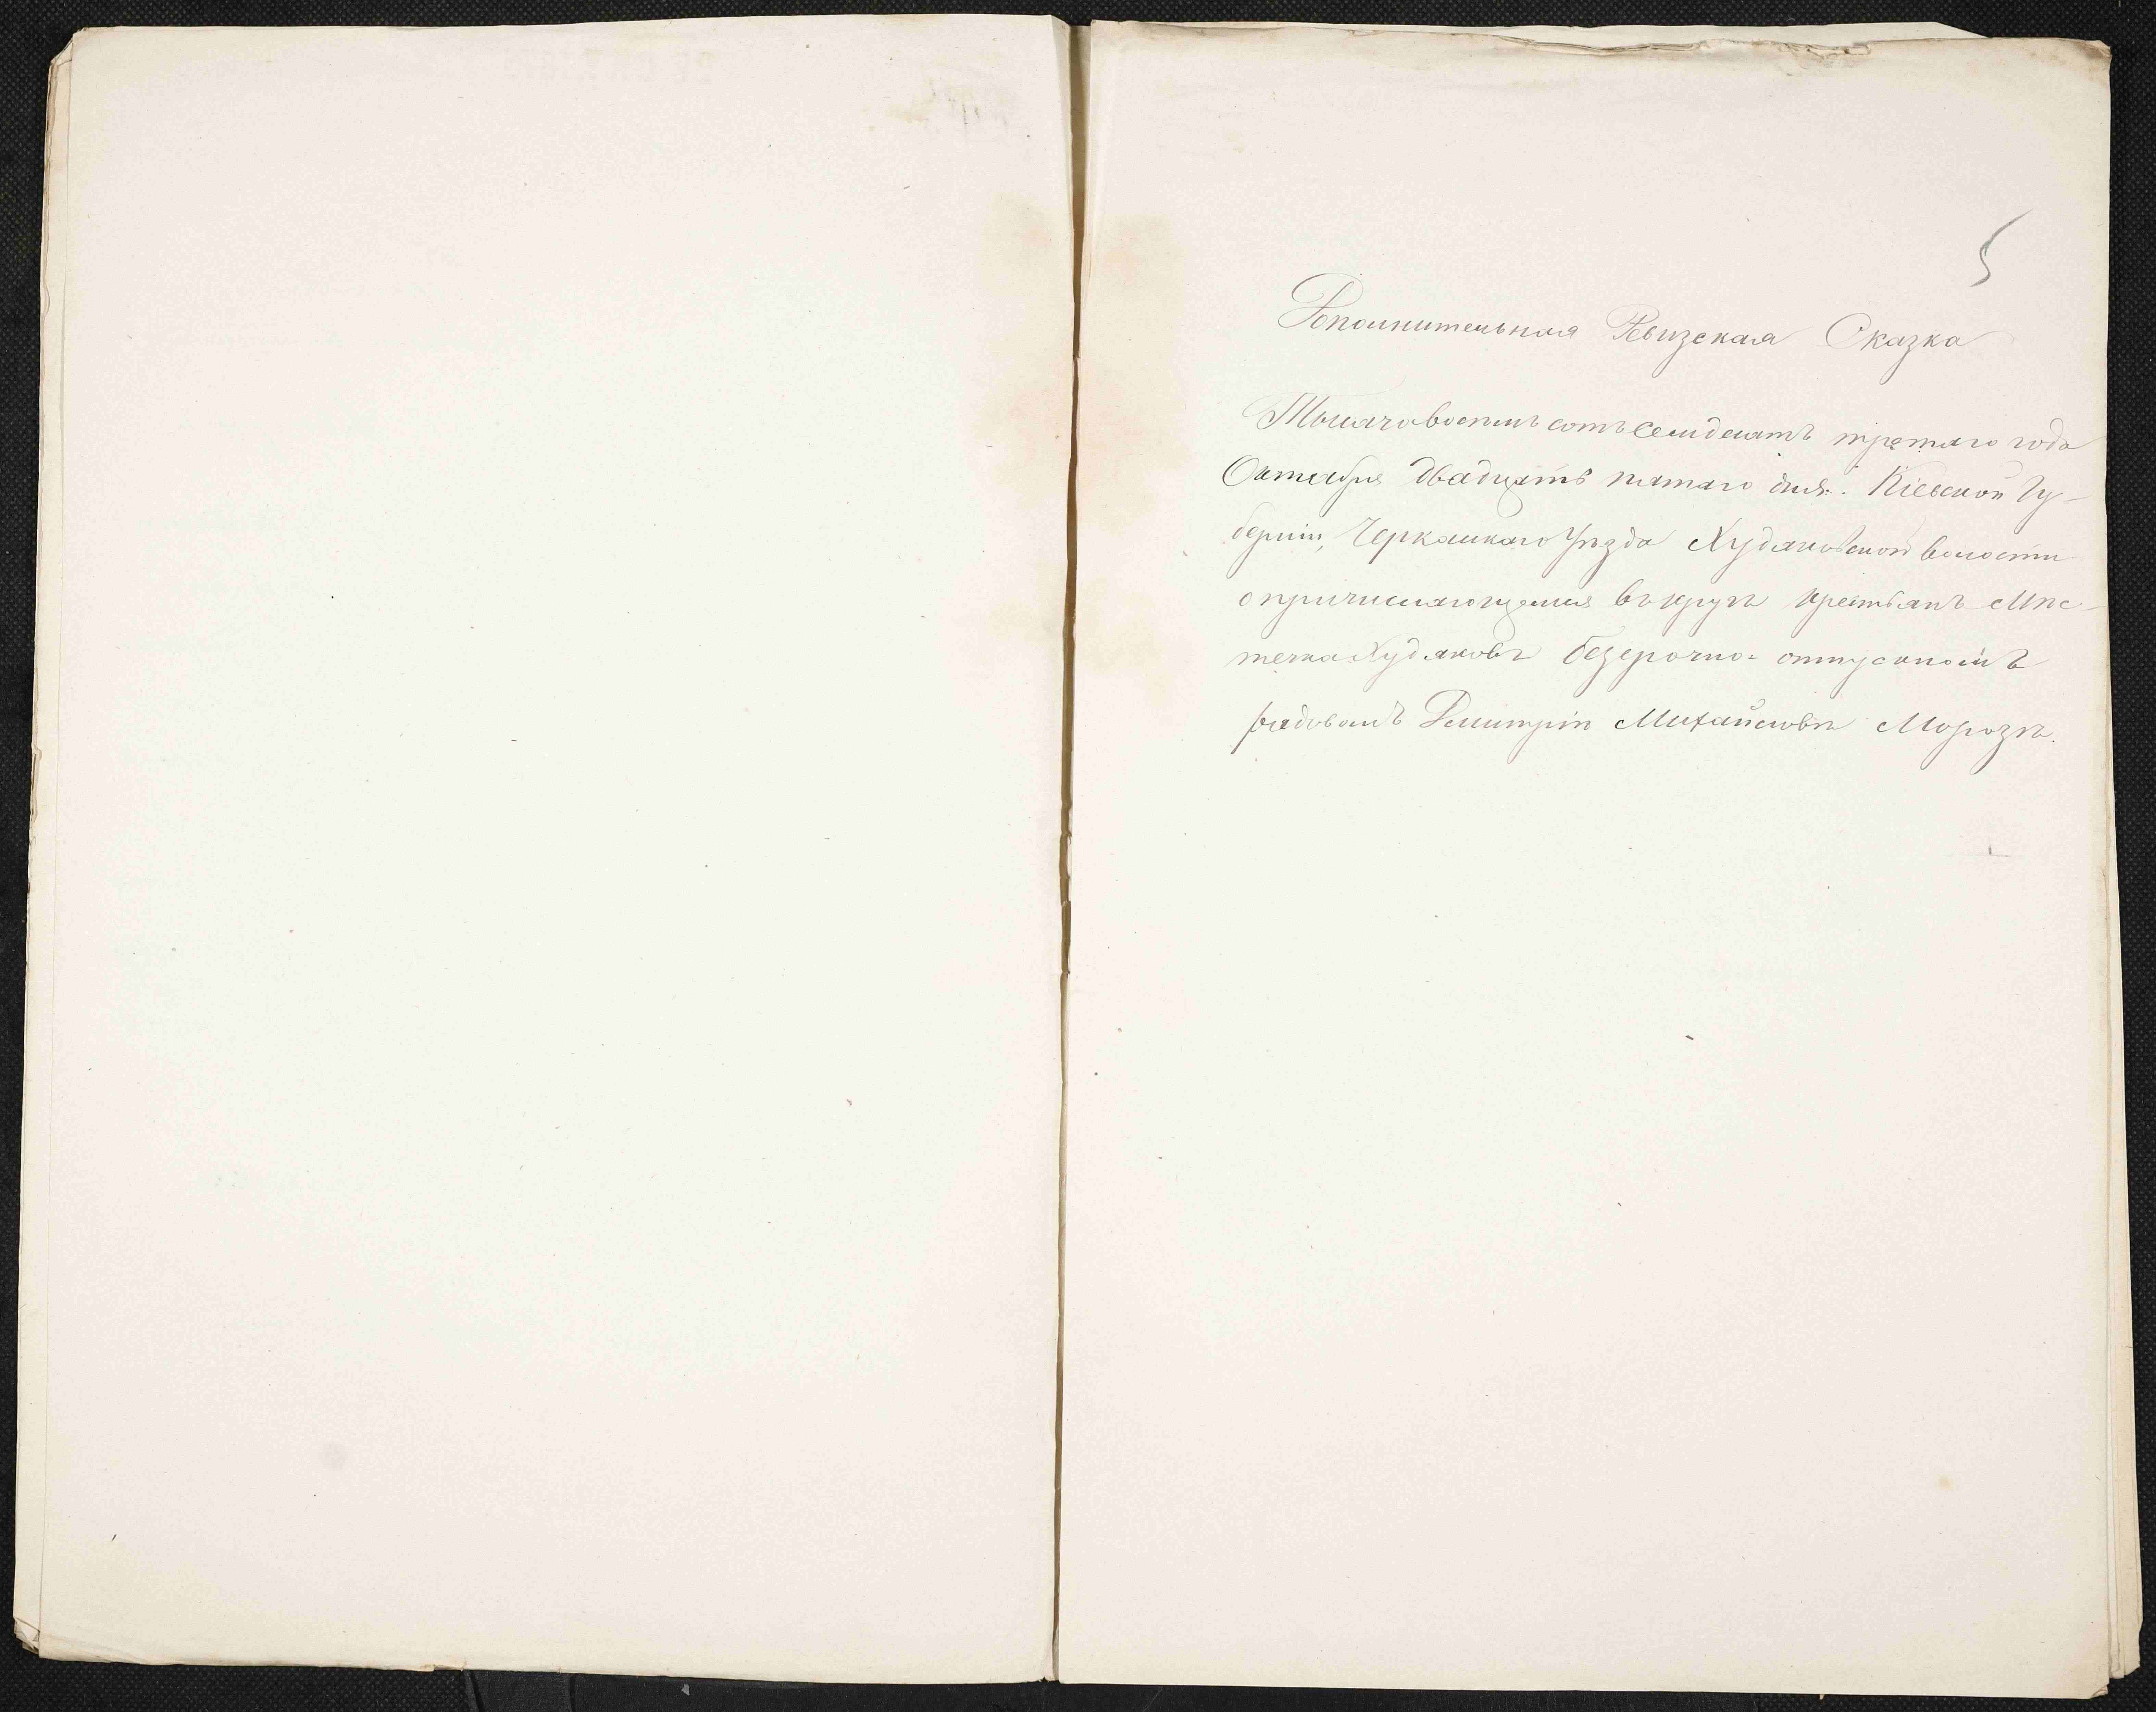 5
Дополнительная Ревизская Сказка
Тысяча восемь сотъ семдесятъ третяго года
Октября двадцать пятаго дня. Кіевской Гу-
берніи, Черкаскаго Уѣзда Худяковской волости
о причисляющемся въ кругъ крестьянъ Мѣс-
течка Худяковъ безсрочно-отпускномъ
рядовомъ Дмитріѣ Михайловѣ Морозѣ.